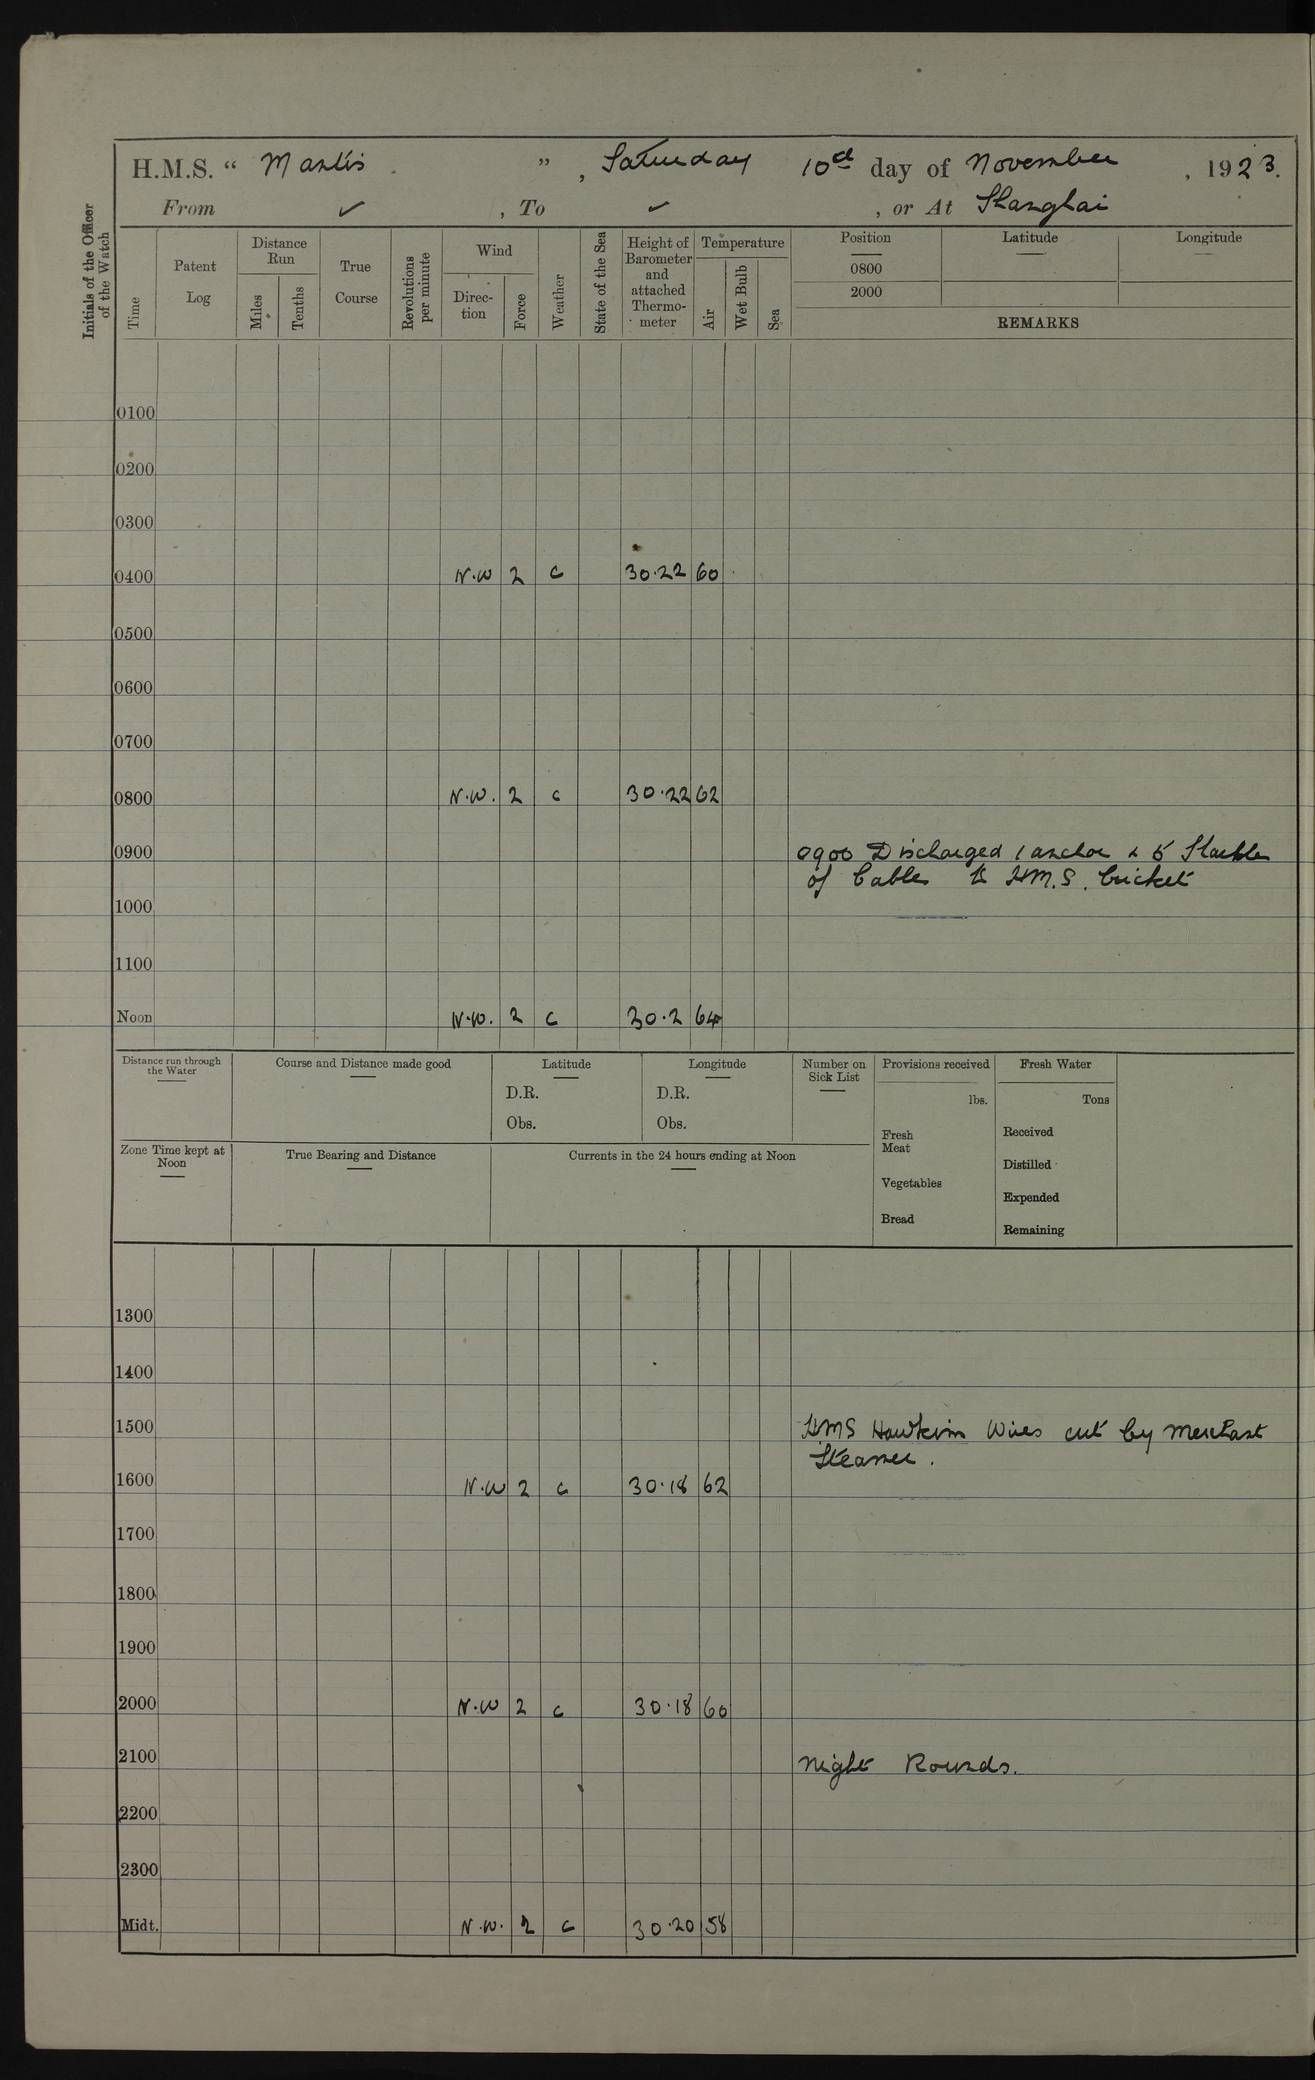 H.M.S. “ Mantis ” , Saturday 10th day of November , 1923.
From ✓ , To ✓ , or At Shanghai
Initials of the Officer of the Watch
Time
Patent Log
Distance Run
Miles
Tenths
True Course
Revolutions per minute
Wind
Direc-tion
Force
Weather
State of the Sea
Height of Barometer and attached Thermo-meter
Temperature
Air
Wet Bulb
Sea
Position Latitude Longitude
0800
2000
REMARKS
0100
0200
0300
0400 N.W 2 c 30.22 60
0500
0600
0700
0800 N.W. 2 c 30.22 62
0900 0900 Discharged 1 anchor & 5 Shackles
of Cables to H.M.S. Cricket
1000
1100
Noon N.W. 2 c 30.2 64
Distance run through the Water
Course and Distance made good
Latitude
D.R.
Obs.
Longitude
D.R.
Obs.
Number on Sick List
Provisions received
lbs.
Fresh Meat
Vegetables
Bread
Fresh Water
Tons
Received
Distilled
Expended
Remaining
Zone Time kept at Noon
True Bearing and Distance
Currents in the 24 hours ending at Noon
1300
1400
1500 HMS Hawkins Wires cut by Merchant
Steamer.
1600 N.W 2 c 30.18 62
1700
1800
1900
2000 N.W 2 c 30.18 60
2100 Night Rounds.
2200
2300
Midt. N.W. 2 c 30.20 58